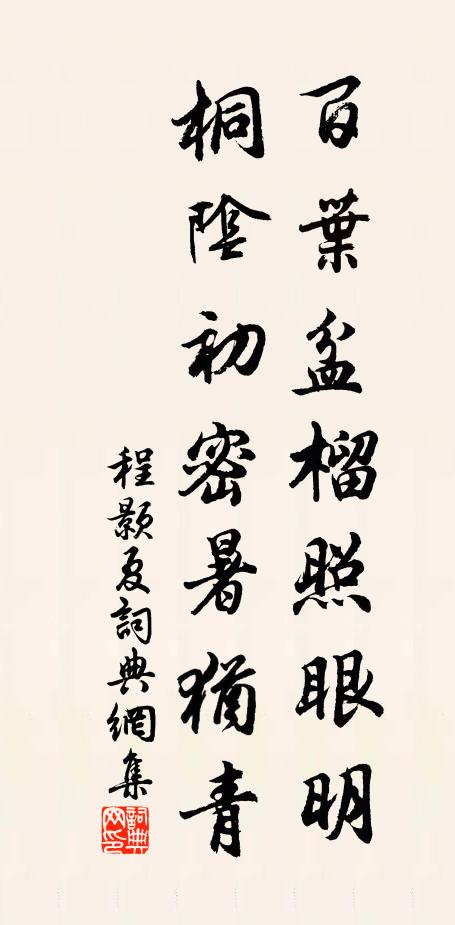 百葉盆榴照眼明
桐陰初密暑猶青
程顥夏詞典網集
詞典網印